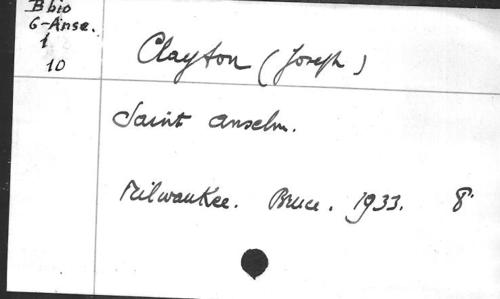 B bio
G-Anse.
1
10
Clayton (Joseph)
Saint Anselm.
Milwaukee. Bruce. 1933. 8°